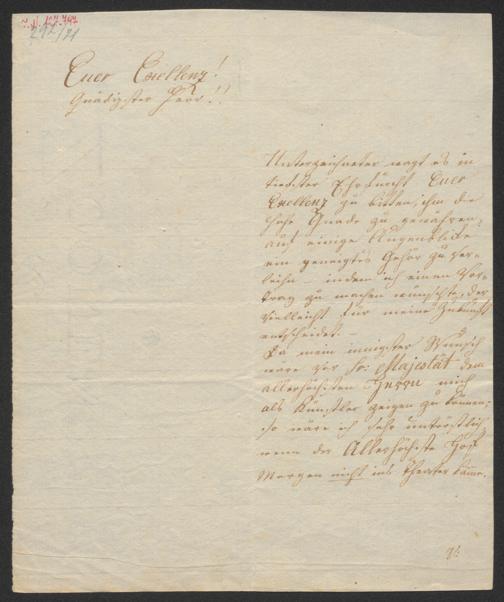 292/21
Euer Excellenz!
Gnädigster Herr!!
Unterzeichneter wagt es in
tiefster Ehrfurcht Euer
Excellenz zu bitten, ihm die
hohe Gnade zu gewähren,
auf einige Augenblicke
ein geneigtes Gehör zu ver-
leihn – indem ich einen Vor-
trag zu machen wünschte, der
vielleicht für meine Zukunft
entscheidet. –
Da mein innigster Wunsch
wäre vor Sr: Majestät dem
allerhöchsten Herrn mich
als Künstler zeigen zu können;
so wäre ich sehr untröstlich
wenn der Allerhöchste Hof
Morgen nicht ins Theater käme.